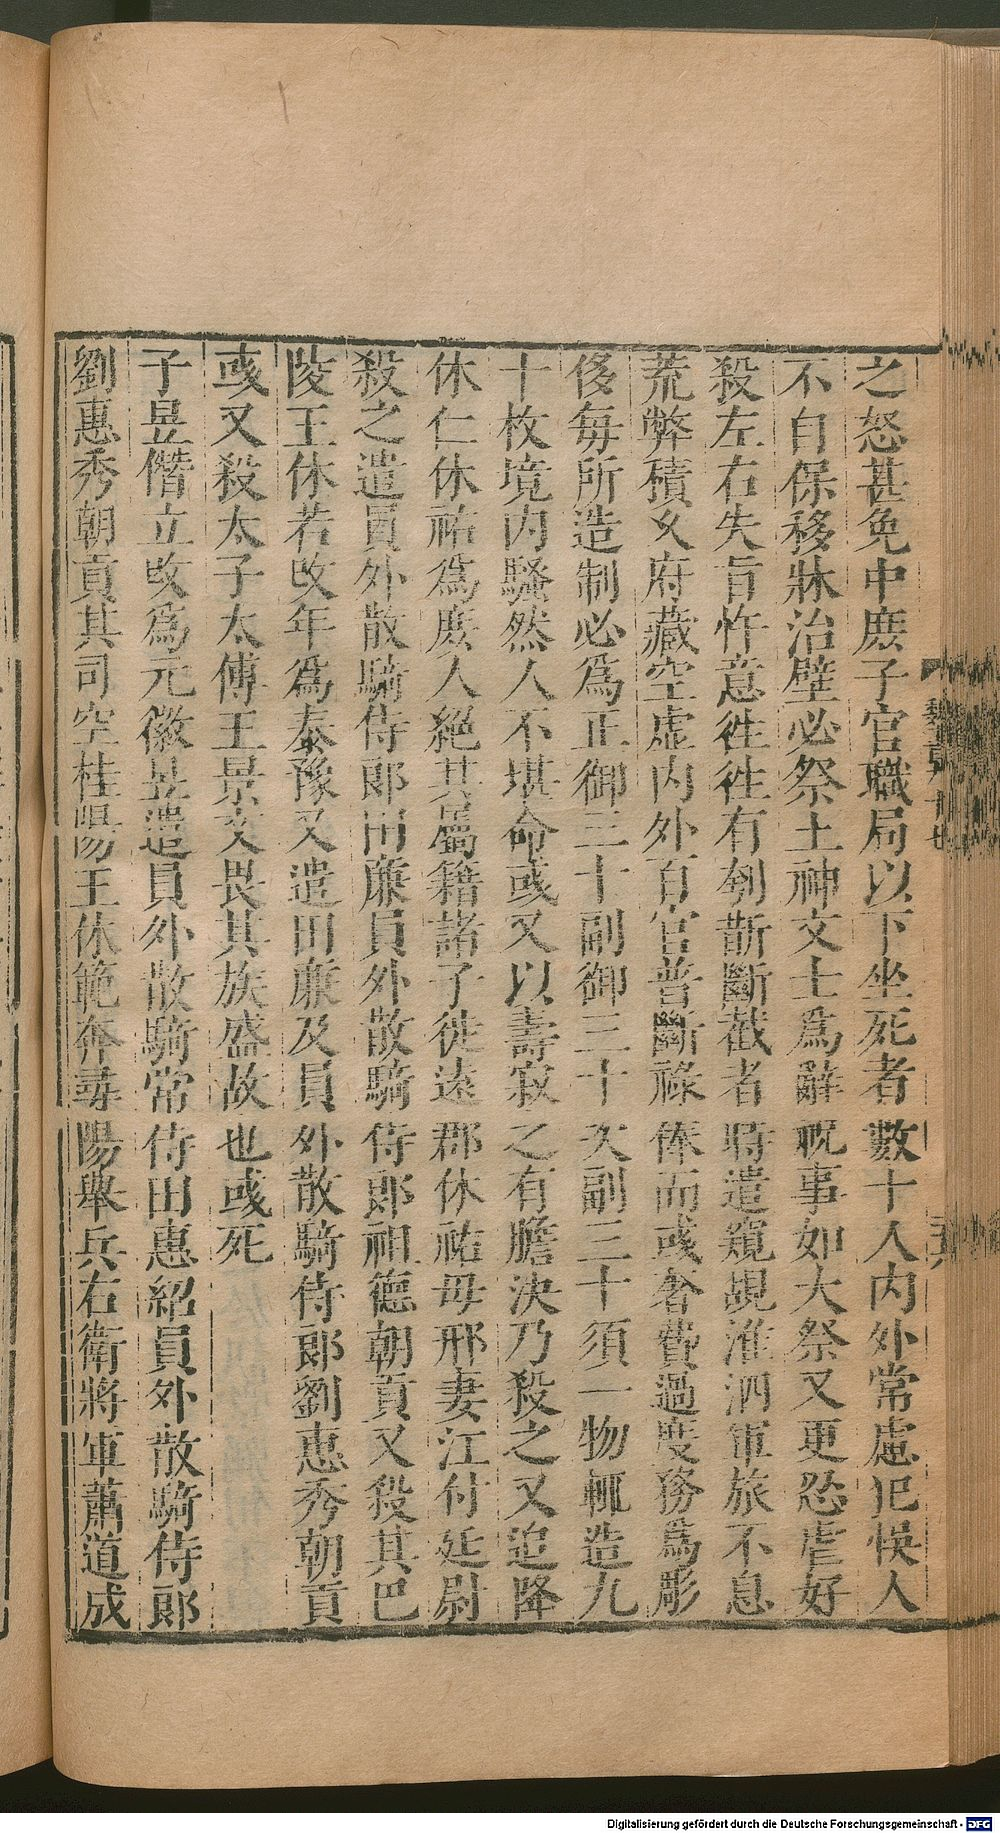 之怒甚免中庶子官職局以下坐死者數十人內外常慮犯悞人
不自保移牀治壁必祭土神文士為辭呪事如大祭又更忍虐好
殺左右失旨忤意徃徃有刳斮斷截者時遣窺覘淮泗軍旅不息
荒弊積久府藏空虛內外百官普斷祿俸而彧奢費過度務為彫
侈每所造制必為正御三十副御三十次副三十須一物輒造九
十枚境內騷然人不堪命彧又以壽寂之有膽決乃殺之又追降
休仁休祐為庶人絕其屬籍諸子徙遠郡休祐毋邢妻江付廷尉
殺之遣員外散騎侍郎田廉員外散騎侍郎祖德朝貢又殺其巴
陵王休若改年為泰豫又遣田廉及員外散騎侍郎劉惠秀朝貢
彧又殺太子太傅王景文畏其族盛故也彧死
子昱僭立改為元徽昱遣員外散騎常侍田惠紹員外散騎侍郎
劉惠秀朝貢其司空桂陽王休範奔尋陽舉兵右衛將軍蕭道成
Digitalisierung gefördert durch die Deutsche Forschungsgemeinschaft - DFG